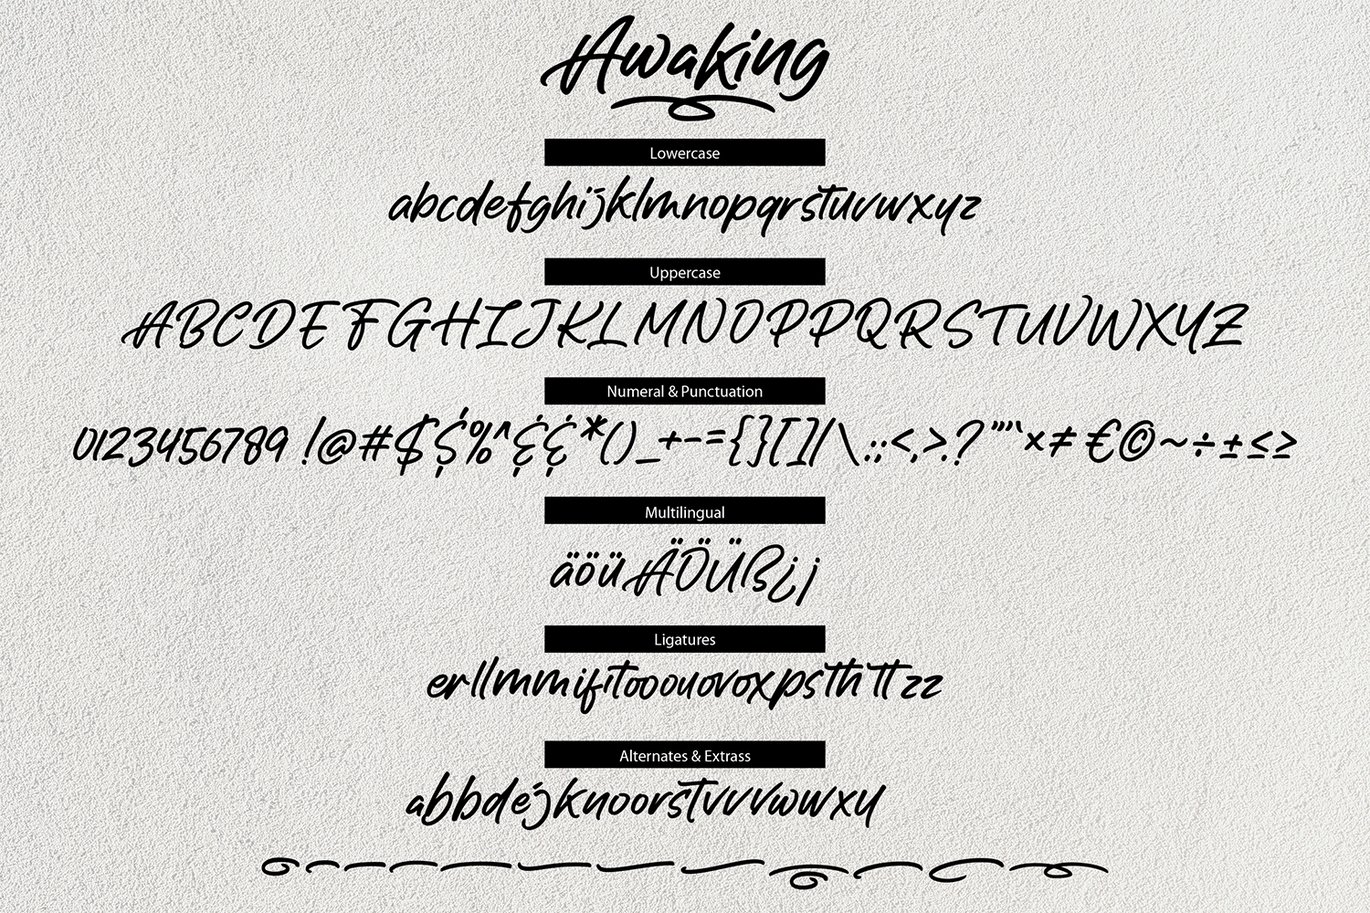 Awaking
Lowercase
abcdefghijklmnopqrstuvwxyz
Uppercase
ABCDEFGHIJKLMNOPPQRSTUVWXYZ
Numeral & Punctuation
0123456789 !@#$$%^&&*()_+-={}[]/\.:;<,>.?"”“×≠€©~÷±≤≥
Multilingual
äöüÄÖÜß¿¡
Ligatures
erllmmifitoooouovoxpsthttzz
Alternates & Extrass
abbdejknoorstvvvwwxy